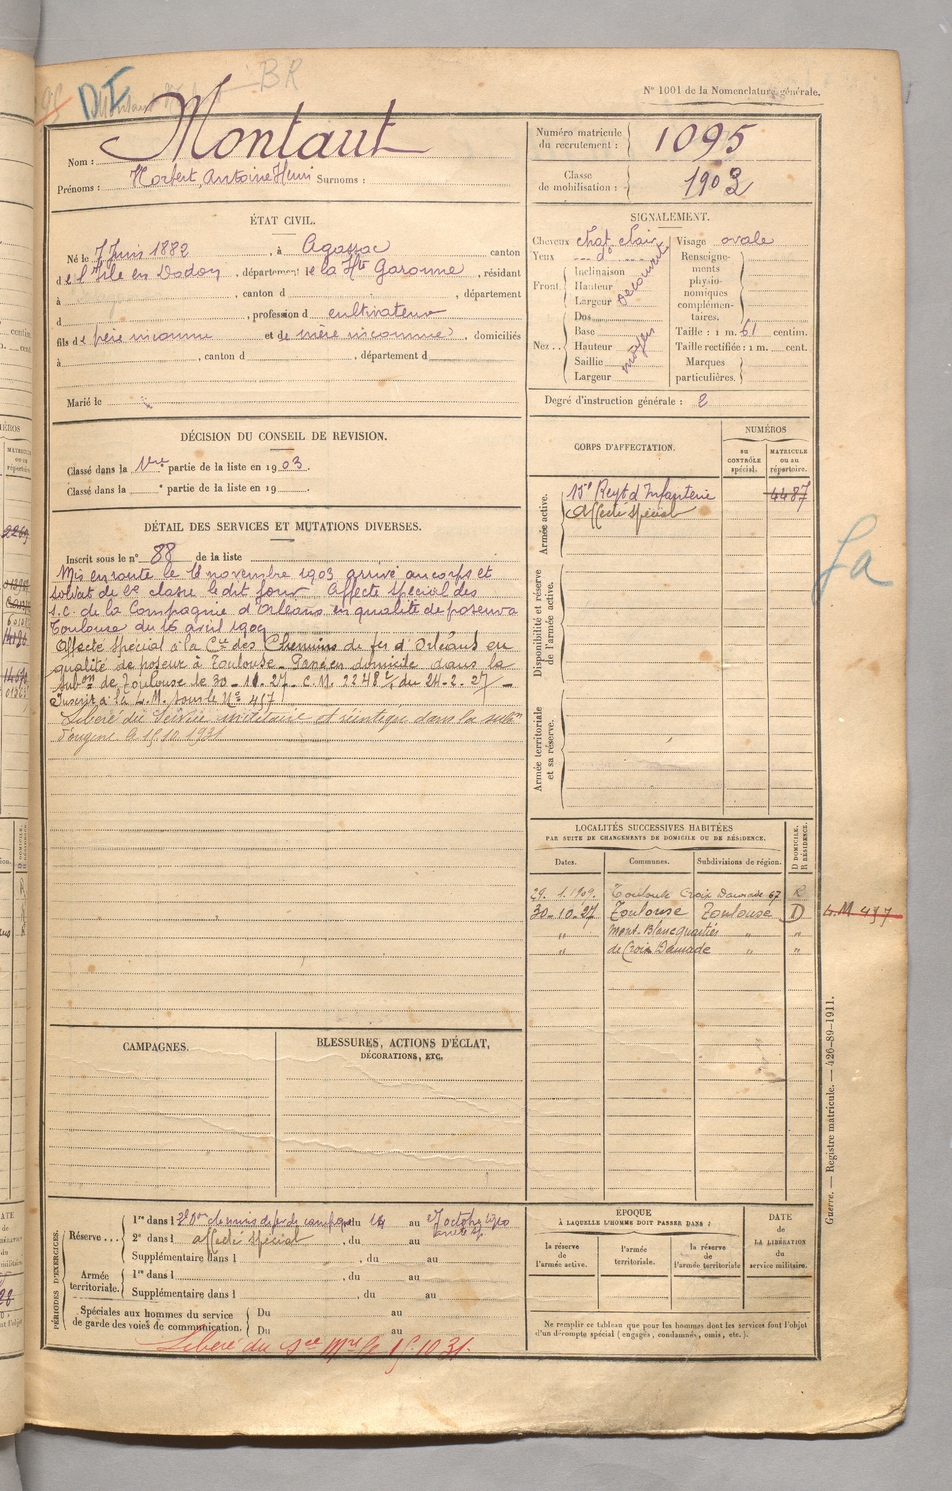 DF
BR
N° 1001 de la Nomenclature générale.
Nom : Montaut
Prénoms : Norbert, Antoine Henri Surnoms :
Numéro matricule du recrutement : 1095
Classe de mobilisation : 1903
ÉTAT CIVIL.
Né le 7 Juin 1882, à Agassac canton
de l'Isle en Dodon, département de la Hte Garonne, résidant
à , canton d , département
d , profession d cultivateur
fils de père inconnu et de mère inconnue, domiciliés
à , canton d , département d
Marié le
SIGNALEMENT.
Cheveux chat. clair Visage ovale
Yeux
Front. Inclinaison Hauteur Largeur découvert
Nez . . Dos Base Hauteur Saillie Largeur moyen
Renseignements physionomiques complémentaires.
Taille : 1 m. 61 centim.
Taille rectifiée : 1 m. cent.
Marques particulières.
Degré d'instruction générale : 2
DÉCISION DU CONSEIL DE REVISION.
Classé dans la 1re partie de la liste en 1903.
Classé dans la e partie de la liste en 19
DÉTAIL DES SERVICES ET MUTATIONS DIVERSES.
Inscrit sous le n° 88 de la liste
Mis en route le novembre 1903 arrivé au corps et
soldat de 2e classe le dit jour Affecté spécial des
s.c. de la Compagnie d'Orléans en qualité de poseur à
Toulouse du 16 avril 1909
Affecté spécial à la Cie des Chemins de fer d'Orléans en
qualité de poseur à Toulouse. Passé en domicile dans la
Subon de Toulouse le 30-10-27. C.M. 2248 du 24-2-27 -
Inscrit à la L.M. sous le N° 457
Libéré du Service militaire et réintégré dans la subon
d'origine le 15.10.1931
CORPS D'AFFECTATION.
NUMÉROS
au CONTRÔLE spécial.
MATRICULE ou au répertoire.
Armée active.
15e Regt d'Infanterie 4487
Affecté spécial
Disponibilité et réserve de l'armée active.
Armée territoriale et sa réserve.
LOCALITÉS SUCCESSIVES HABITÉES
PAR SUITE DE CHANGEMENTS DE DOMICILE OU DE RÉSIDENCE.
D DOMICILE. R RÉSIDENCE.
Dates. Communes. Subdivisions de région.
29. 1. 1909. Toulouse Croix Daurade 67 R
30-10-27 Toulouse Toulouse D L.M 457
" Mont. Blanc quartier " "
" de Croix Daurade " "
Guerre. — Registre matricule. — 426-89-1911.
CAMPAGNES.
BLESSURES, ACTIONS D'ÉCLAT,
DÉCORATIONS, ETC.
PÉRIODES D'EXERCICES.
Réserve . . . 1re dans l de campagne du au octobre 1910
2e dans l affecté spécial , du au
Supplémentaire dans l , du au
Armée territoriale. 1re dans l , du au
Supplémentaire dans l , du au
Spéciales aux hommes du service
de garde des voies de communication.
Du au
Du au
Libéré du Sce Mre le 15.10.31.
ÉPOQUE
À LAQUELLE L'HOMME DOIT PASSER DANS :
la réserve de l'armée active.
l'armée territoriale.
la réserve de l'armée territoriale
DATE de LA LIBÉRATION du service militaire.
Ne remplir ce tableau que pour les hommes dont les services font l'objet
d'un décompte spécial (engagés, condamnés, omis, etc.).